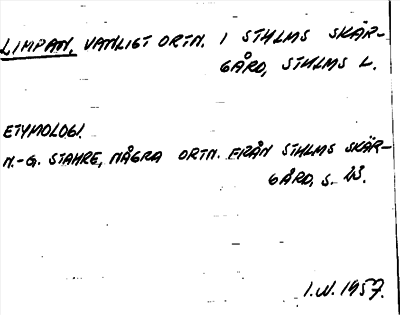 LIMPAN, VANLIGT ORTN. I STHLMS SKÄR-
GÅRD, STHLMS L.
ETYMOLOGI.
N.-G. STAHRE, NÅGRA ORTN. FRÅN STHLMS SKÄR-
GÅRD, S. 23.
I.W. 1957.